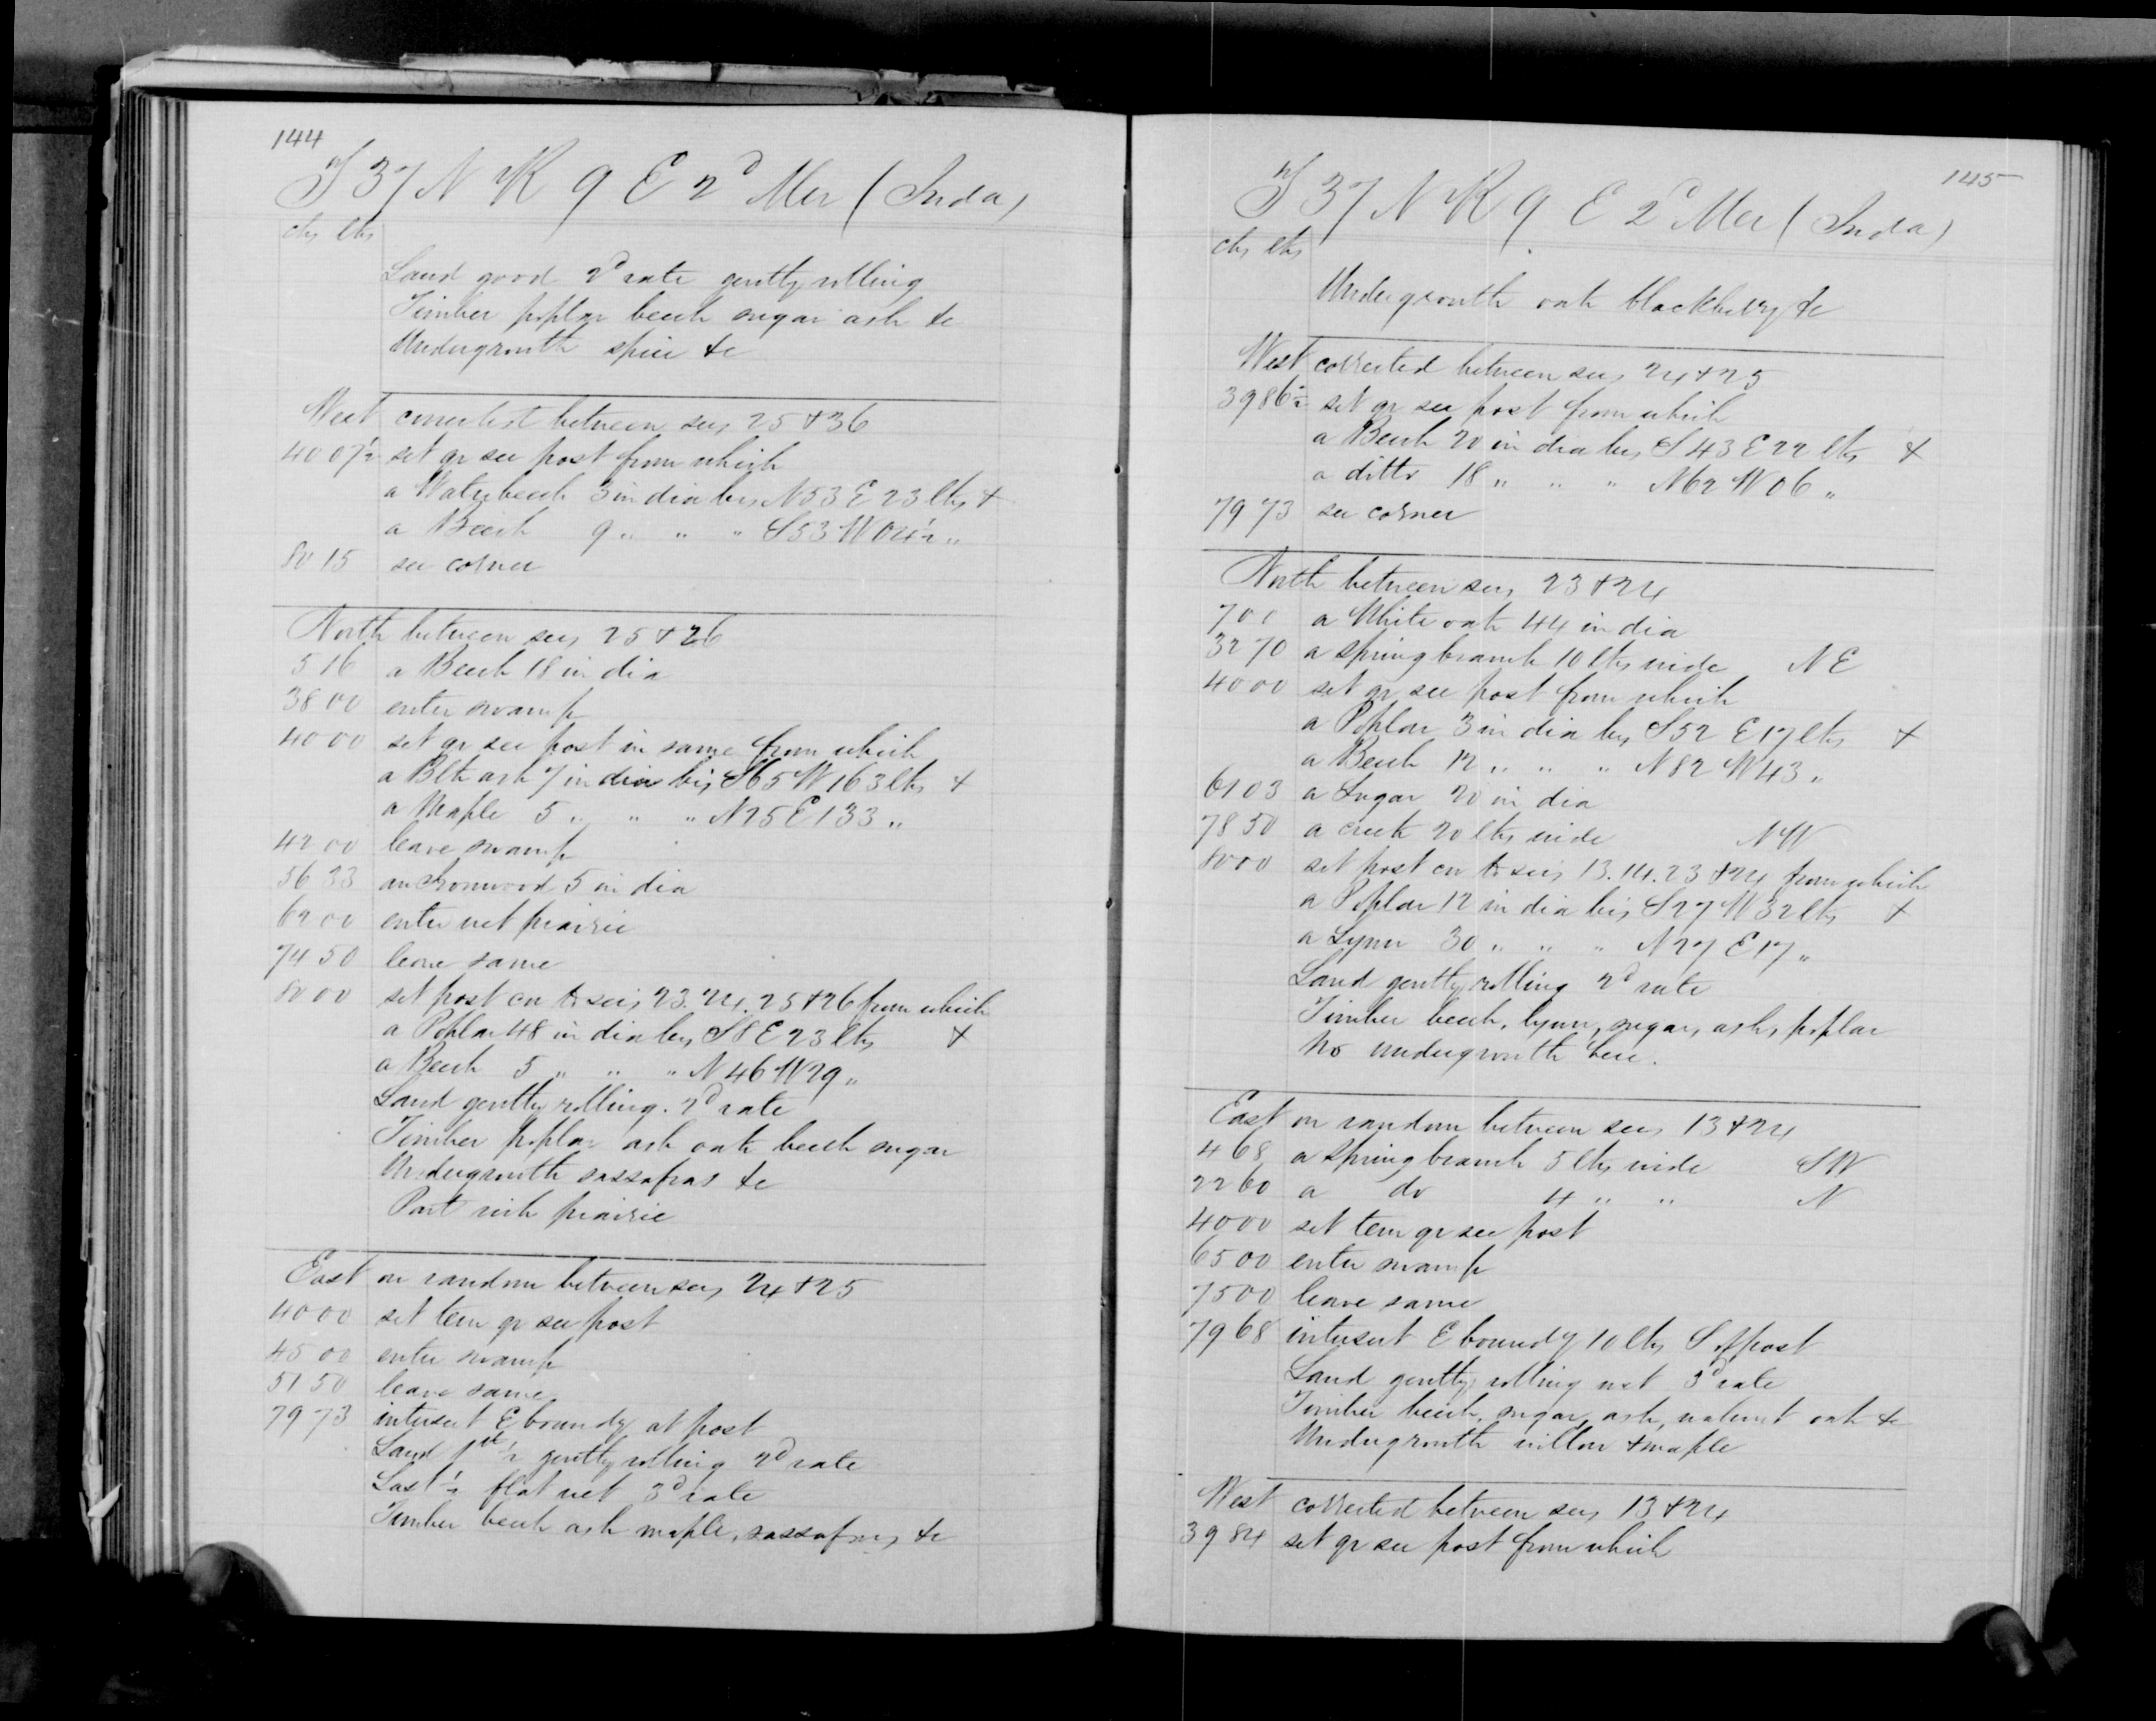 144
T 37 N R 9 E 2d Mer (Inda)
chs lks
Land good 2d rate gently rolling
Timber poplar beech sugar ash &c
Undergrowth spice &c
West corrected between secs 25 + 36
40 07½ set qr sec post from which
a Waterbeech 3 in dia brs N53 E 23 lks +
a Beech 9 " " " S53 W 04½ "
80 15 sec corner
North between secs 25 + 26
5 16 a Beech 18 in dia
38 00 enter swamp
40 00 set qr sec post in same from which
a Blk ash 7 in dia brs S65 W 163 lks +
a Maple 5 " " " N25 E 133 "
42 00 leave swamp
56 33 an Ironwood 5 in dia
62 00 enter wet prairie
74 50 leave same
80 00 set post cor to secs 23. 24. 25 + 26 from which
a Poplar 48 in dia brs S8 E 23 lks +
a Beech 5 " " " N46 W 29 "
Land gently rolling. 2d rate
Timber poplar ash oak beech sugar
Undergrowth sassafras &c
Part rich prairie
East on random between secs 24 + 25
40 00 set tem qr sec post
45 00 enter swamp
51 50 leave same
79 73 intersect E boundy at post
Land 1st ½ gently rolling 2d rate
Last ½ flat wet 3d rate
Timber beech ash maple, sassafras, &c
145
T 37 N R 9 E 2d Mer (Inda)
chs lks
Undergrowth oak blackberry &c
West corrected between secs 24 + 25
39 86½ set qr sec post from which
a Beech 20 in dia brs S43 E 22 lks +
a ditto 18 " " " N62 W 06 "
79 73 sec corner
North between secs 23 + 24
a White oak 44 in dia
32 70 a spring branch 10 lks wide NE
40 00 set qr sec post from which
a Poplar 3 in dia brs S52 E 17 lks +
a Beech 12 " " " N82 W 43 "
61 03 a Sugar 20 in dia
78 50 a creek 20 lks wide NW
80 00 set post cor to secs 13. 14. 23 + 24 from which
a Poplar 12 in dia brs S27 W 32 lks +
a Lynn 30 " " " N27 E 17 "
Land gently rolling 2d rate
Timber beech, lynn, sugar, ash, poplar
No undergrowth here.
East on random between secs 13 + 24
4 68 a spring branch 5 lks wide SW
22 60 a do 4 " " N
40 00 set tem qr sec post
65 00 enter swamp
75 00 leave same
79 68 intersect E boundy 10 lks S of post
Land gently rolling wet 3d rate
Timber beech, sugar, ash, walnut oak &c
Undergrowth willow + maple
West corrected between secs 13 + 24
39 84 set qr sec post from which